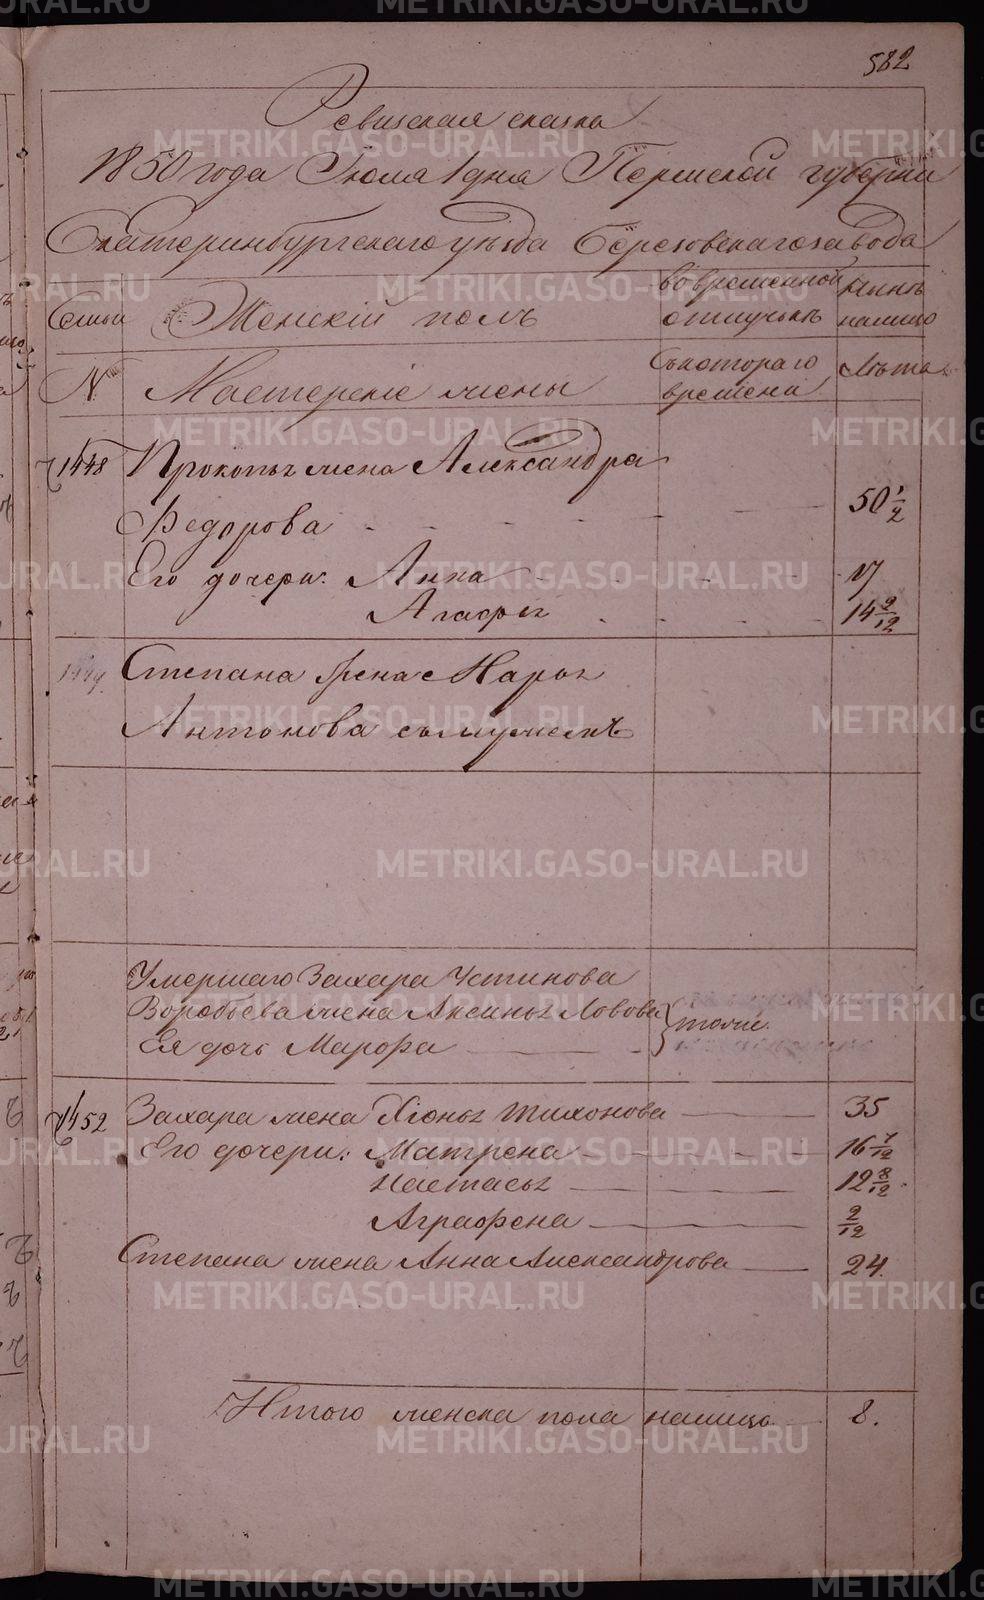 582
Ревизская сказка
1850 года Июля 1 дня Пермской губернии
Екатеринбургского уезда Березовского завода
Семьи Женский полъ во временной отлучькъ нынъ налицо
№ Мастерскіе жены съ котораго времени лъта
1448 Прокопья жена Александра
Федорова 50 1/2
Его дочери: Анна 17
Агафья 14 2/12
1449 Степана жена Марья
Антонова съ мужемъ
Умершаго Захара Устинова
Воробьева жена Аксинья Ловова
Ея дочь Марфа тоже.
1452 Захара жена Хіонья Тихонова 35
Его дочери: Матрена 16 7/12
Настасья 12 8/12
Аграфена 2/12
Степана жена Анна Александрова 24.
Итого женска пола налицо 8.
METRIKI.GASO-URAL.RU